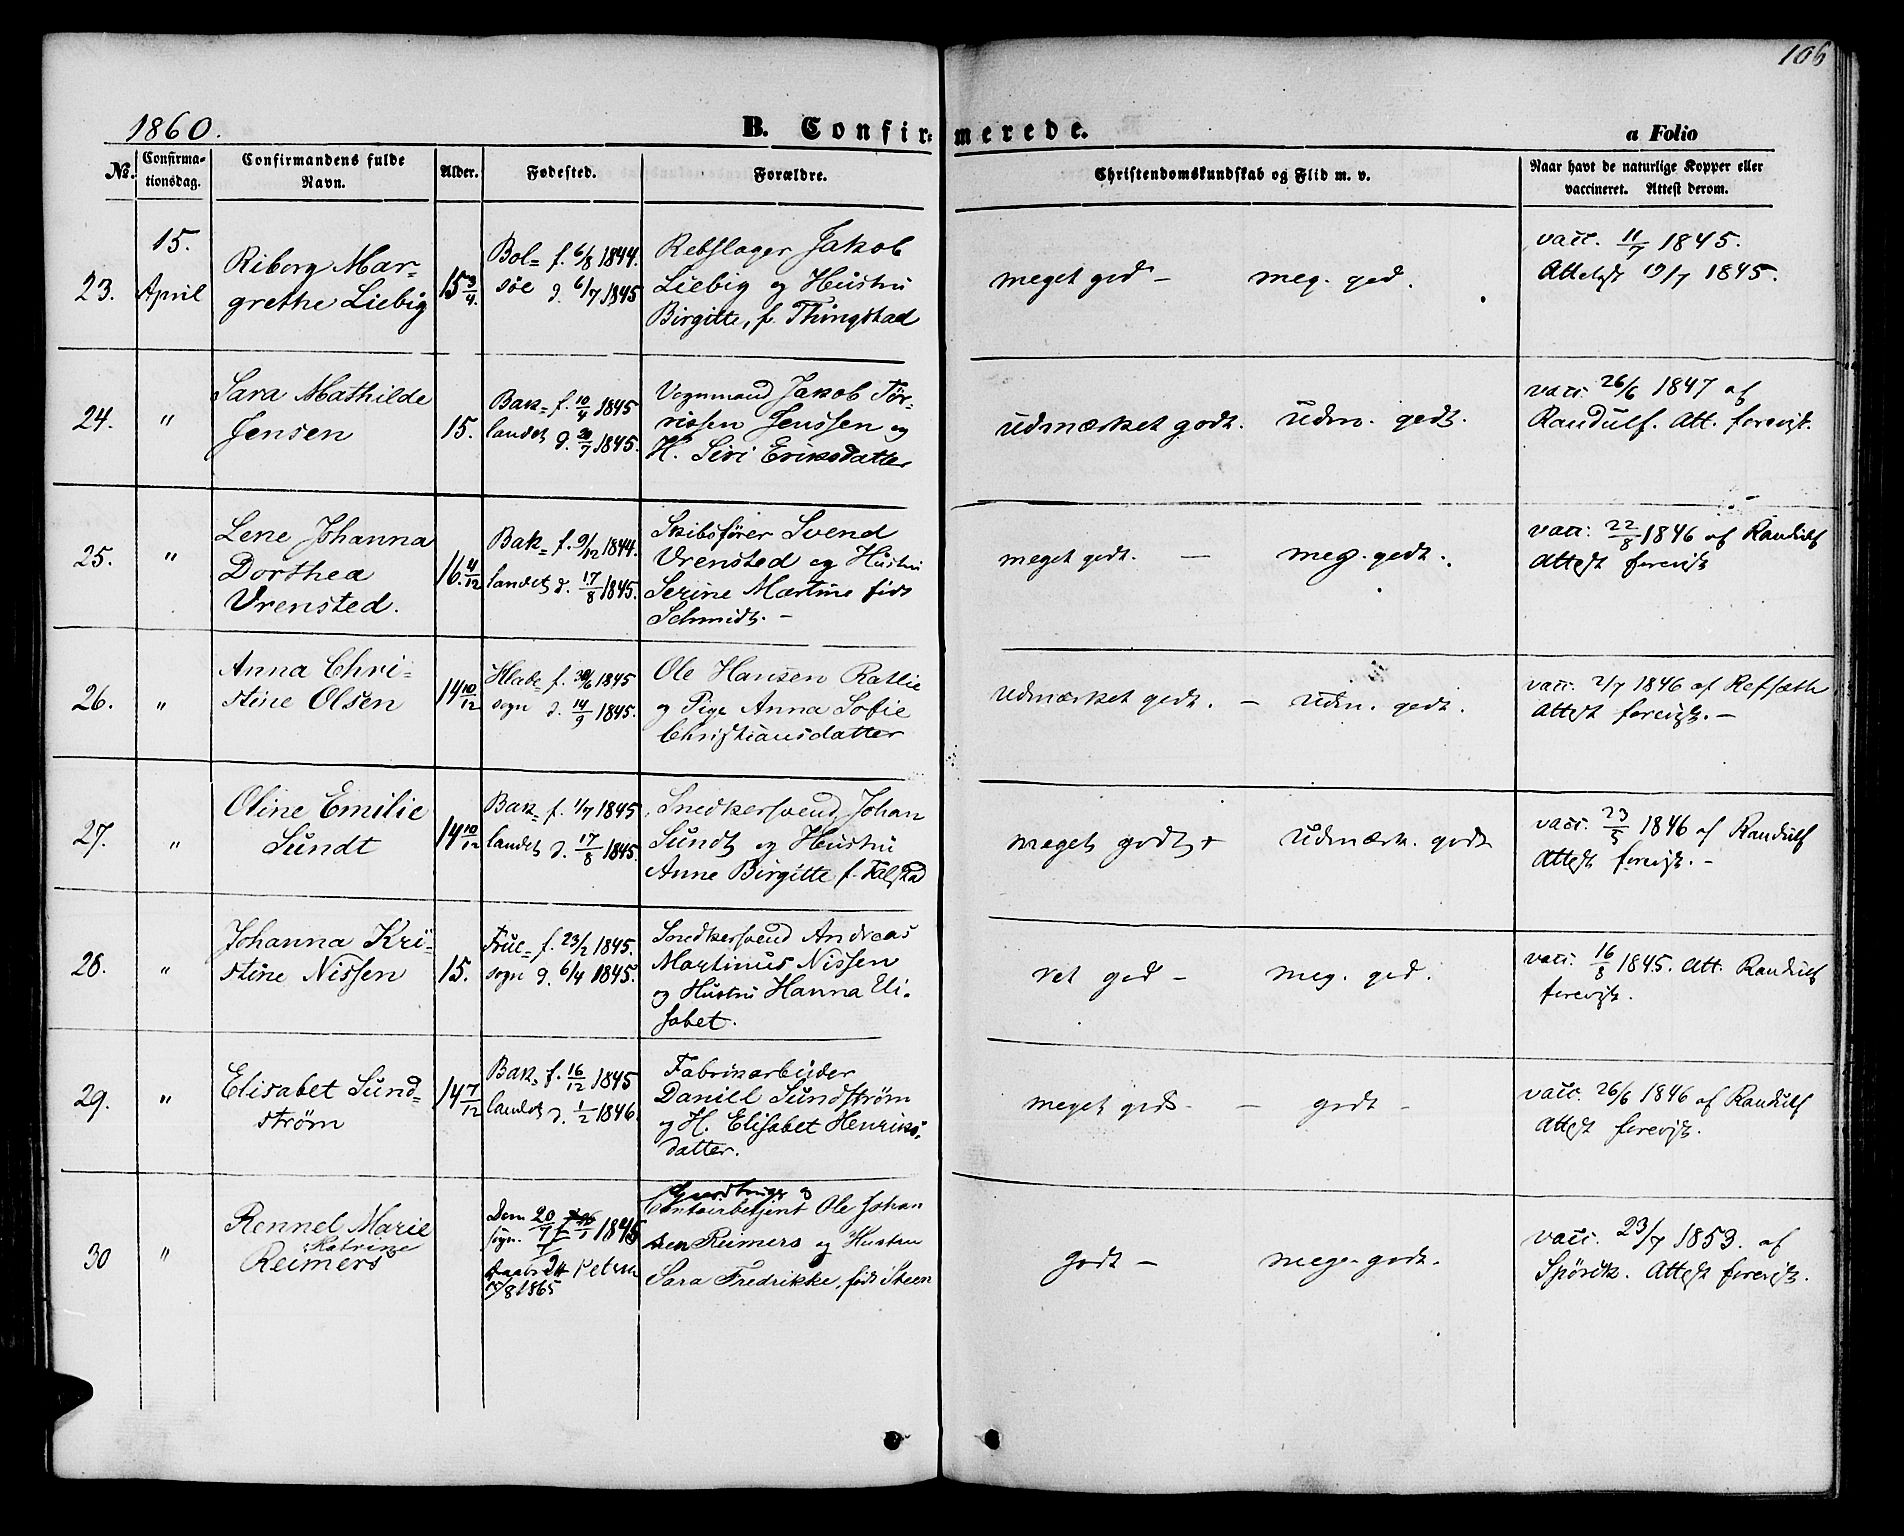 106
1860.
B. Confirmerede.
a Folio
No. Confirmationsdag. Confirmandens fulde Navn. Alder. Fødested. Forældre. Christendomskundskab og Flid m. v. Naar havt de naturlige Kopper eller vaccineret. Attest derom.
23.
15.
April
Riborg Mar-
grethe Liebig
15 3/4
Bak= f. 6/8 1844.
d. 6/7 1845
Rebslager Jakob
Liebig og Hustru
Birgitte, f. Thingstad
meget god - meg. god.
vacc. 11/7 1845.
Attest 19/7 1845.
24.
"
Sara Mathilde
Jensen
15.
Bak= f. 10/4 1845
landet d. 20/7 1845.
Vognmand Jakob Tør-
rissen Jenssen og
H. Siri Eriksdatter
udmærket godt. udm. godt.
vacc. 26/6 1847 af
Randulf. Att. forevist.
25.
"
Lene Johanna
Dorthea
Vrensted.
16 4/12
Bak= f. 9/12 1844.
landet d. 17/8 1845.
Skibsfører Svend
Vrensted og Hustru
Serine Martine født
Schmidt. -
meget godt. - meg. godt.
vacc. 22/8 1846 af Randulf
Attest forevist
26.
"
Anna Chri-
stine Olsen
14 10/12
Hlade= f. 30/6 1845
sogn d. 14/9 1845.
Ole Hansen Ratlie
og Pige Anna Sofie
Christiansdatter
udmærket godt. - udm. godt.
vacc. 2/7 1846 af Refsæth
Attest forevist. -
27.
"
Oline Emilie
Sundt
14 10/12
Bak= f. 1/7 1845
landet d. 17/8 1845.
Snedkersvend Johan
Sundt og Hustru
Anne Birgitte f. Falstad
meget godt - udmærk. godt
vacc. 23/5 1846 af Randulf
Attest forevist. -
28.
"
Johanna Kri-
stine Nissen
15.
Frue= f. 23/2 1845.
sogn d. 6/4 1845.
Snedkersvend Andreas
Martinus Nissen
og Hustru Hanna Eli-
sabet.
ret god - meg. god.
vacc. 16/8 1845. Att. Randulf
forevist.
29.
"
Elisabet Sund-
strøm
14 7/12
Bak= f. 16/12 1845
landet d. 1/2 1846.
Fabrikarbeider
Daniel Sundstrøm
og H. Elisabet Henriks-
datter.
meget godt - godt -
vacc. 26/6 1846 af Randulf
Attest forevist.
30
"
Rennel Marie
Katrine
Reimers
Dom
sogn. 20/9 1845
8 1865
Gaardbruger og
Contoirbetjent Ole Johan
Reimers og Hustru
Sara Fredrikke, født Steen
godt - meg. godt.
vacc. 23/7 1853. af
Spørck. Attest forevist.